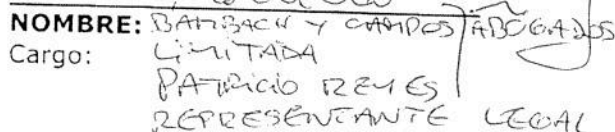 NOMBRE: BAMBACH Y CAMPOS ABOGADOS
Cargo: LIMITADA
PATRICIO REYES
REPRESENTANTE LEGAL